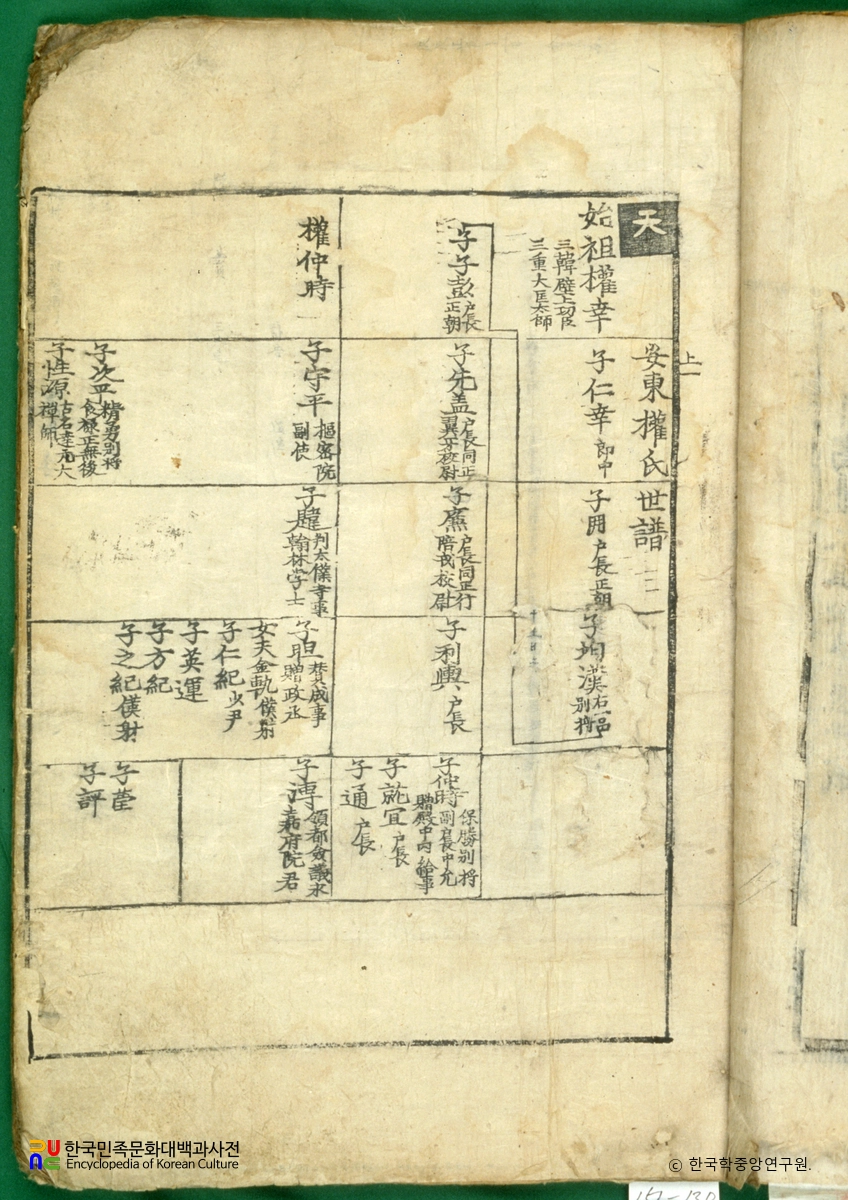 天
安東權氏世譜
上一
始祖權幸
三韓壁上功臣
三重大匡太師
子仁幸 郎中
子冊 戶長正朝
子均漢 右一品
別將
子子彭 戶長
正朝
子先盖 戶長同正
翼牙校尉
子廉 戶長同正行
陪戎校尉
子利輿 戶長
子仲時 保勝別將
副戶長中允
贈殿中內給事
子就宜 戶長
子通 戶長
權仲時
子守平 樞密院
副使
子韙 判太僕寺事
翰林學士
子㫜 贊成事
贈政丞
女夫金軌 僕射
子仁紀 少尹
子英運
子方紀
子之紀 僕射
子溥 領都僉議
嘉府院君
子萓
子評
子次平 精勇別將
食祿正無後
子性源 古名達元大
禪師
한국민족문화대백과사전
Encyclopedia of Korean Culture
© 한국학중앙연구원.